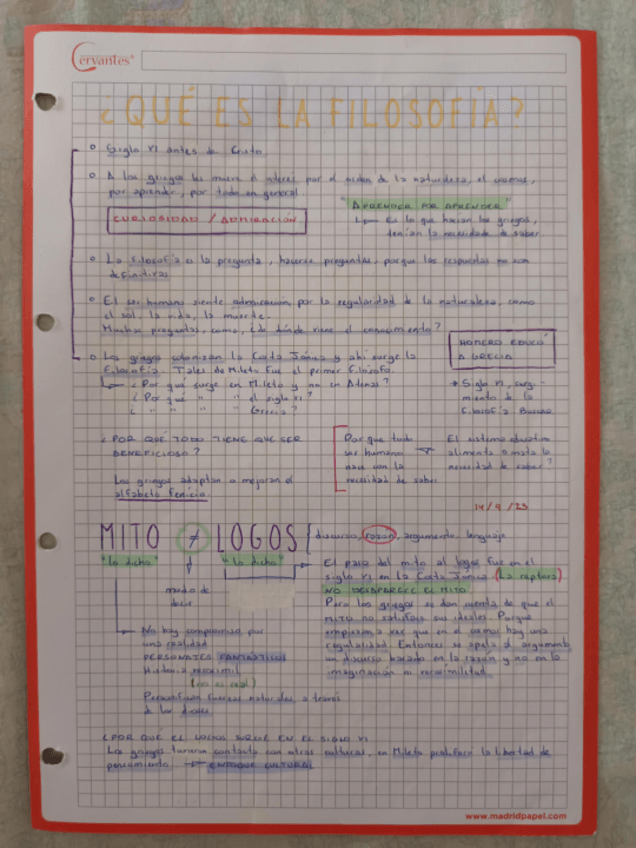 Cervantes
¿QUÉ ES LA FILOSOFÍA?
Siglo VI antes de Cristo
A los griegos les mueve el interés por el orden de la naturaleza, el cosmos,
por aprender, por todo en general.
"APRENDER POR APRENDER"
CURIOSIDAD / ADMIRACIÓN
Es lo que hacían los griegos,
tenían la necesidad de saber.
La filosofía es la pregunta, hacerse preguntas, porque las respuestas no son
definitivas.
El ser humano siente admiración por la regularidad de la naturaleza, como
el sol, la vida, la muerte.
Muchas preguntas, como, ¿de dónde viene el conocimiento?
HOMERO EDUCÓ
A GRECIA
Los griegos colonizan la Costa Jónica y ahí surge la
filosofía. Tales de Mileto fue el primer filósofo.
¿Por qué surge en Mileto y no en Atenas?
¿Por qué " " el siglo VI?
¿ " " " Grecia?
* Siglo VI, surgi-
miento de la
filosofía
¿POR QUÉ TODO TIENE QUE SER
BENEFICIOSO?
Porque todo
ser humano
nace con la
necesidad de saber
El sistema educativo
alimenta o mata la
necesidad de saber?
Los griegos adaptan o mejoran el
alfabeto fenicio.
14/9/23
MITO ≠ LOGOS
discurso, razón, argumento, lenguaje
"lo dicho"
"lo dicho"
modo de
decir
El paso del mito al logos fue en el
siglo VI en la Costa Jónica (la ruptura)
NO DESAPARECE EL MITO
Pero los griegos se dan cuenta de que el
mito no satisface sus ideales. Porque
empiezan a ver que en el cosmos hay una
regularidad. Entonces se apela al argumento
un discurso basado en la razón y no en la
imaginación ni verosimilitud.
No hay compromiso por
una realidad
PERSONAJES FANTÁSTICOS
Historia verosímil
(no es real)
Personifican fuerzas naturales, a través
de los dioses
¿POR QUÉ EL LOGOS SURGE EN EL SIGLO VI
Los griegos tuvieron contacto con otras culturas, en Mileto prolifera la libertad de
pensamiento. ENFOQUE CULTURAL
www.madridpapel.com